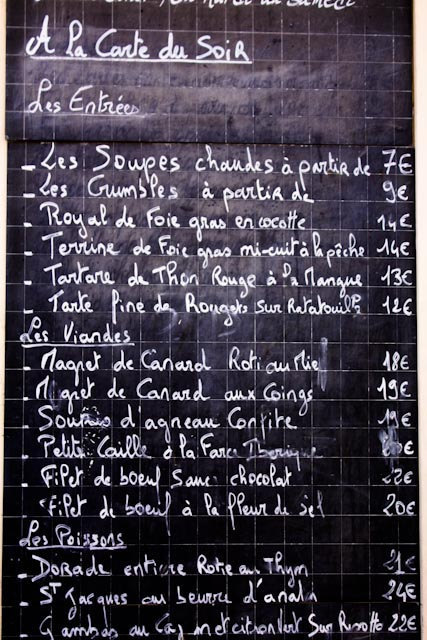 A la Carte du Soir
Les Entrées
- Les Soupes chaudes à partir de 7€
- Les Crumbles à partir de 9€
- Royal de Foie gras en cocotte 14€
- Terrine de Foie gras mi-cuit à la pêche 14€
- Tartare de Thon Rouge à la Mangue 13€
- Tarte fine de Rougets sur Ratatouille 12€
Les Viandes
- Magret de Canard Roti au Miel 18€
- Magret de Canard aux Coings 19€
- Souris d'agneau Confite 19€
- Petite Caille à la Farce Iberique
- Filet de boeuf Sauce chocolat 22€
- Filet de boeuf à la fleur de sel 20€
Les Poissons
- Dorade entiere Rotie au Thym 21€
- St Jacques au beurre d'
24€
- Gambas au et citron vert Sur Risotto 22€